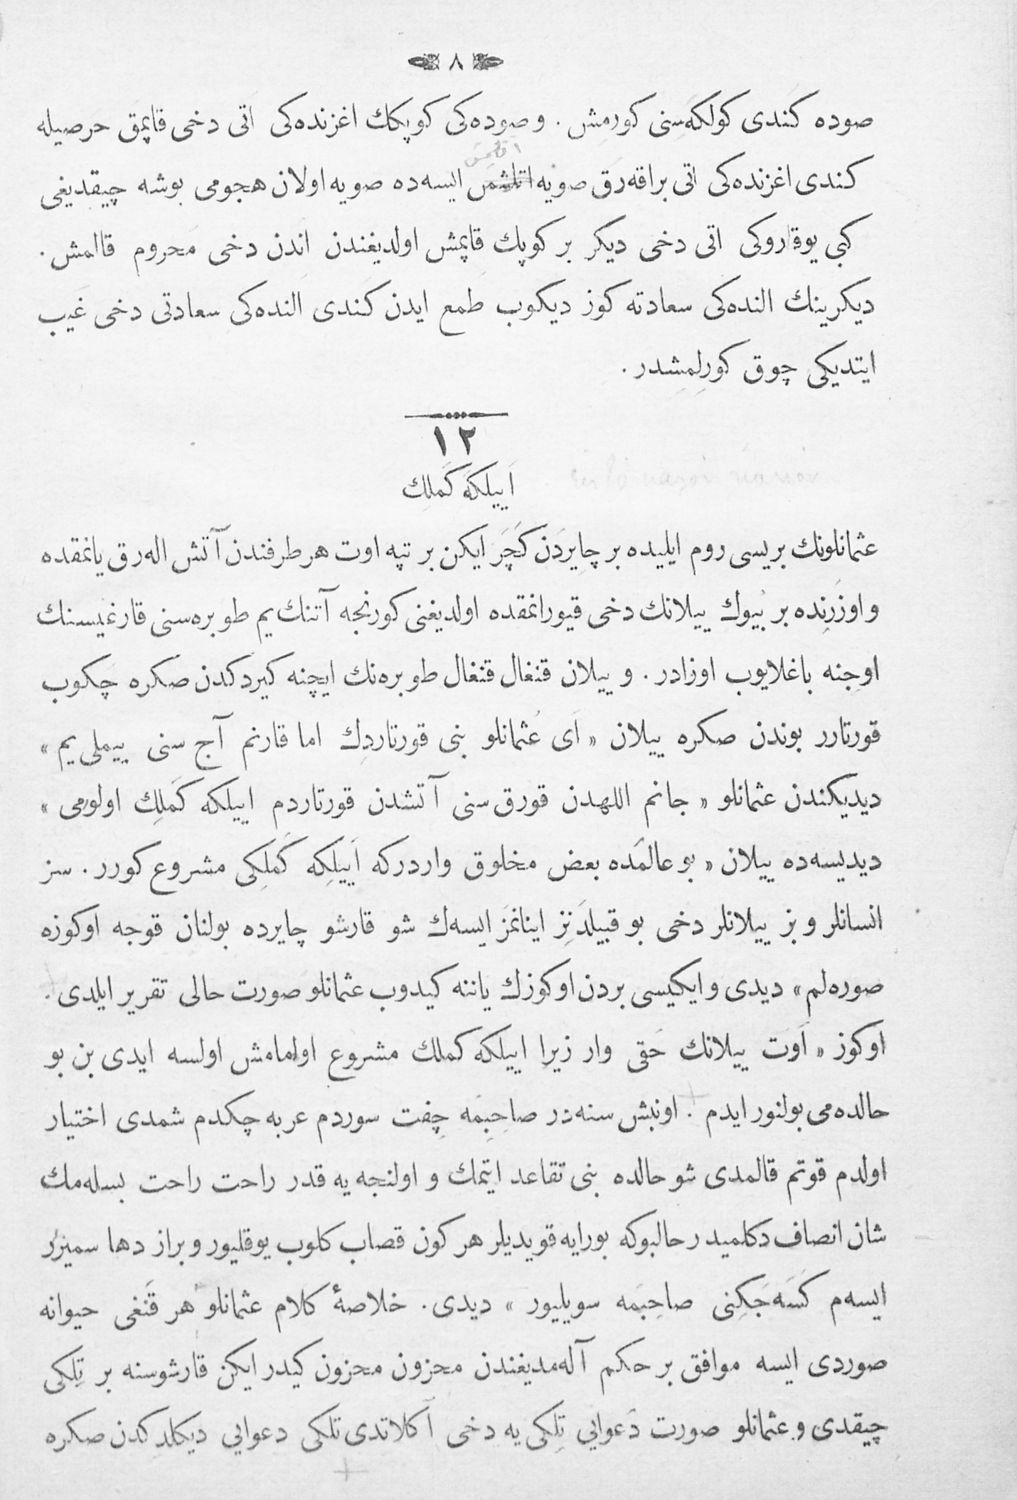 ٨
صوده كَندى كولكَه‌سِنى كورمِش . و صوده‌كى كوپكك اغزنده‌كى اَتى دخى قاپمق حرصيله
كندى اغزنده‌كى اتى براقه‌رق صويه اتلشمش ايسه‌ده صويه اولان هجومى بوشه چيقديغى
كبى يوقاروكى اتى دخى ديكر بر كوپك قاپمش اولديغندن اندن دخى محروم قالمش .
ديكرينك النده‌كى سعادته كوز ديكوب طمع ايدن كندى النده‌كى سعادتى دخى غَيب
ايتديكى چوق كورِلمِشدر .
١٢
اَييلكه كَملِك
عثمانلونك بريسى روم ايليده بر چايردَن كَچَر ايكن بر تپه اوت هر طرفندن آتش اله‌رق يانمقده
و اوزَرِنده بر بُيوك ييلانك دخى قيورانمقده اولديغنى كورنجه آتنك يم طوبره‌سنى قارغيسنك
اوجنه باغلايوب اوزادر . و ييلان قنغال قنغال طوبره‌نك ايچنه كيردكدن صكره چكوب
قورتارر بوندن صكره ييلان « اَى عُثمانلو بنى قورتاردِك اما قارنم آج سنى ييملى‌يم »
ديديكندن عثمانلو « جانم اللهدن قورق سنى آتشدن قورتاردم اييلكه كَملِك اولورمى »
ديديسه‌ده ييلان « بو عالمده بعض مخلوق واردركه اَييلكِه كَملِكى مشروع كورر . سز
انسانلر و بز ييلانلر دخى بو قبيلدَنِز اينانمز ايسه‌ك شو قارشو چايرده بولنان قوجه اوكوزه
صوره‌لم » ديدى و ايكيسى بردن اوكوزك ياننه كيدوب عثمانلو صورت حالى تقرير ايلدى .
اوكوز « اَوت ييلانك حَقى وار زيرا اييلكه كملك مشروع اولمامش اولسه ايدى بن بو
حالده‌مى بولنور ايدم . اونبش سنه‌در صاحِبمَه چِفت سوردم عربه چكدم شمدى اختيار
اولدم قوتم قالمدى شو حالده بنى تقاعد ايتمك و اولنجه‌يه قدر راحت راحت بسله‌مك
شان انصاف دكلميدر حالبوكه بورايه قويديلر هر كون قصاب كلوب يوقليور و براز دها سميزر
ايسه‌م كَسَه‌جَكِنى صاحِبمَه سويليور » ديدى . خلاصهٔ كلام عثمانلو هر قَنغى حيوانه
صوردى ايسه موافق بر حكم آله‌مديغندن محزون محزون كيدر ايكن قارشوسنه بر تِلكى
چيقدى و عثمانلو صورت دَعوايى تِلكى‌يه دخى آكلاتدى تلكى دعوايى ديكلدكدن صكره